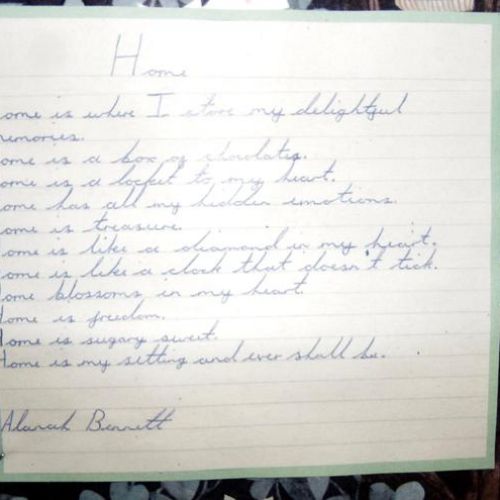 Home
ome is where I store my delightful
memories.
ome is a box of chocolates.
ome is a locket to my heart.
ome has all my hidden emotions.
ome is treasure.
ome is like a diamond in my heart.
ome is like a clock that doesn't tick.
Home blossoms in my heart.
Home is freedom.
Home is sugary sweet.
Home is my setting and ever shall be.
Alanah Bennett